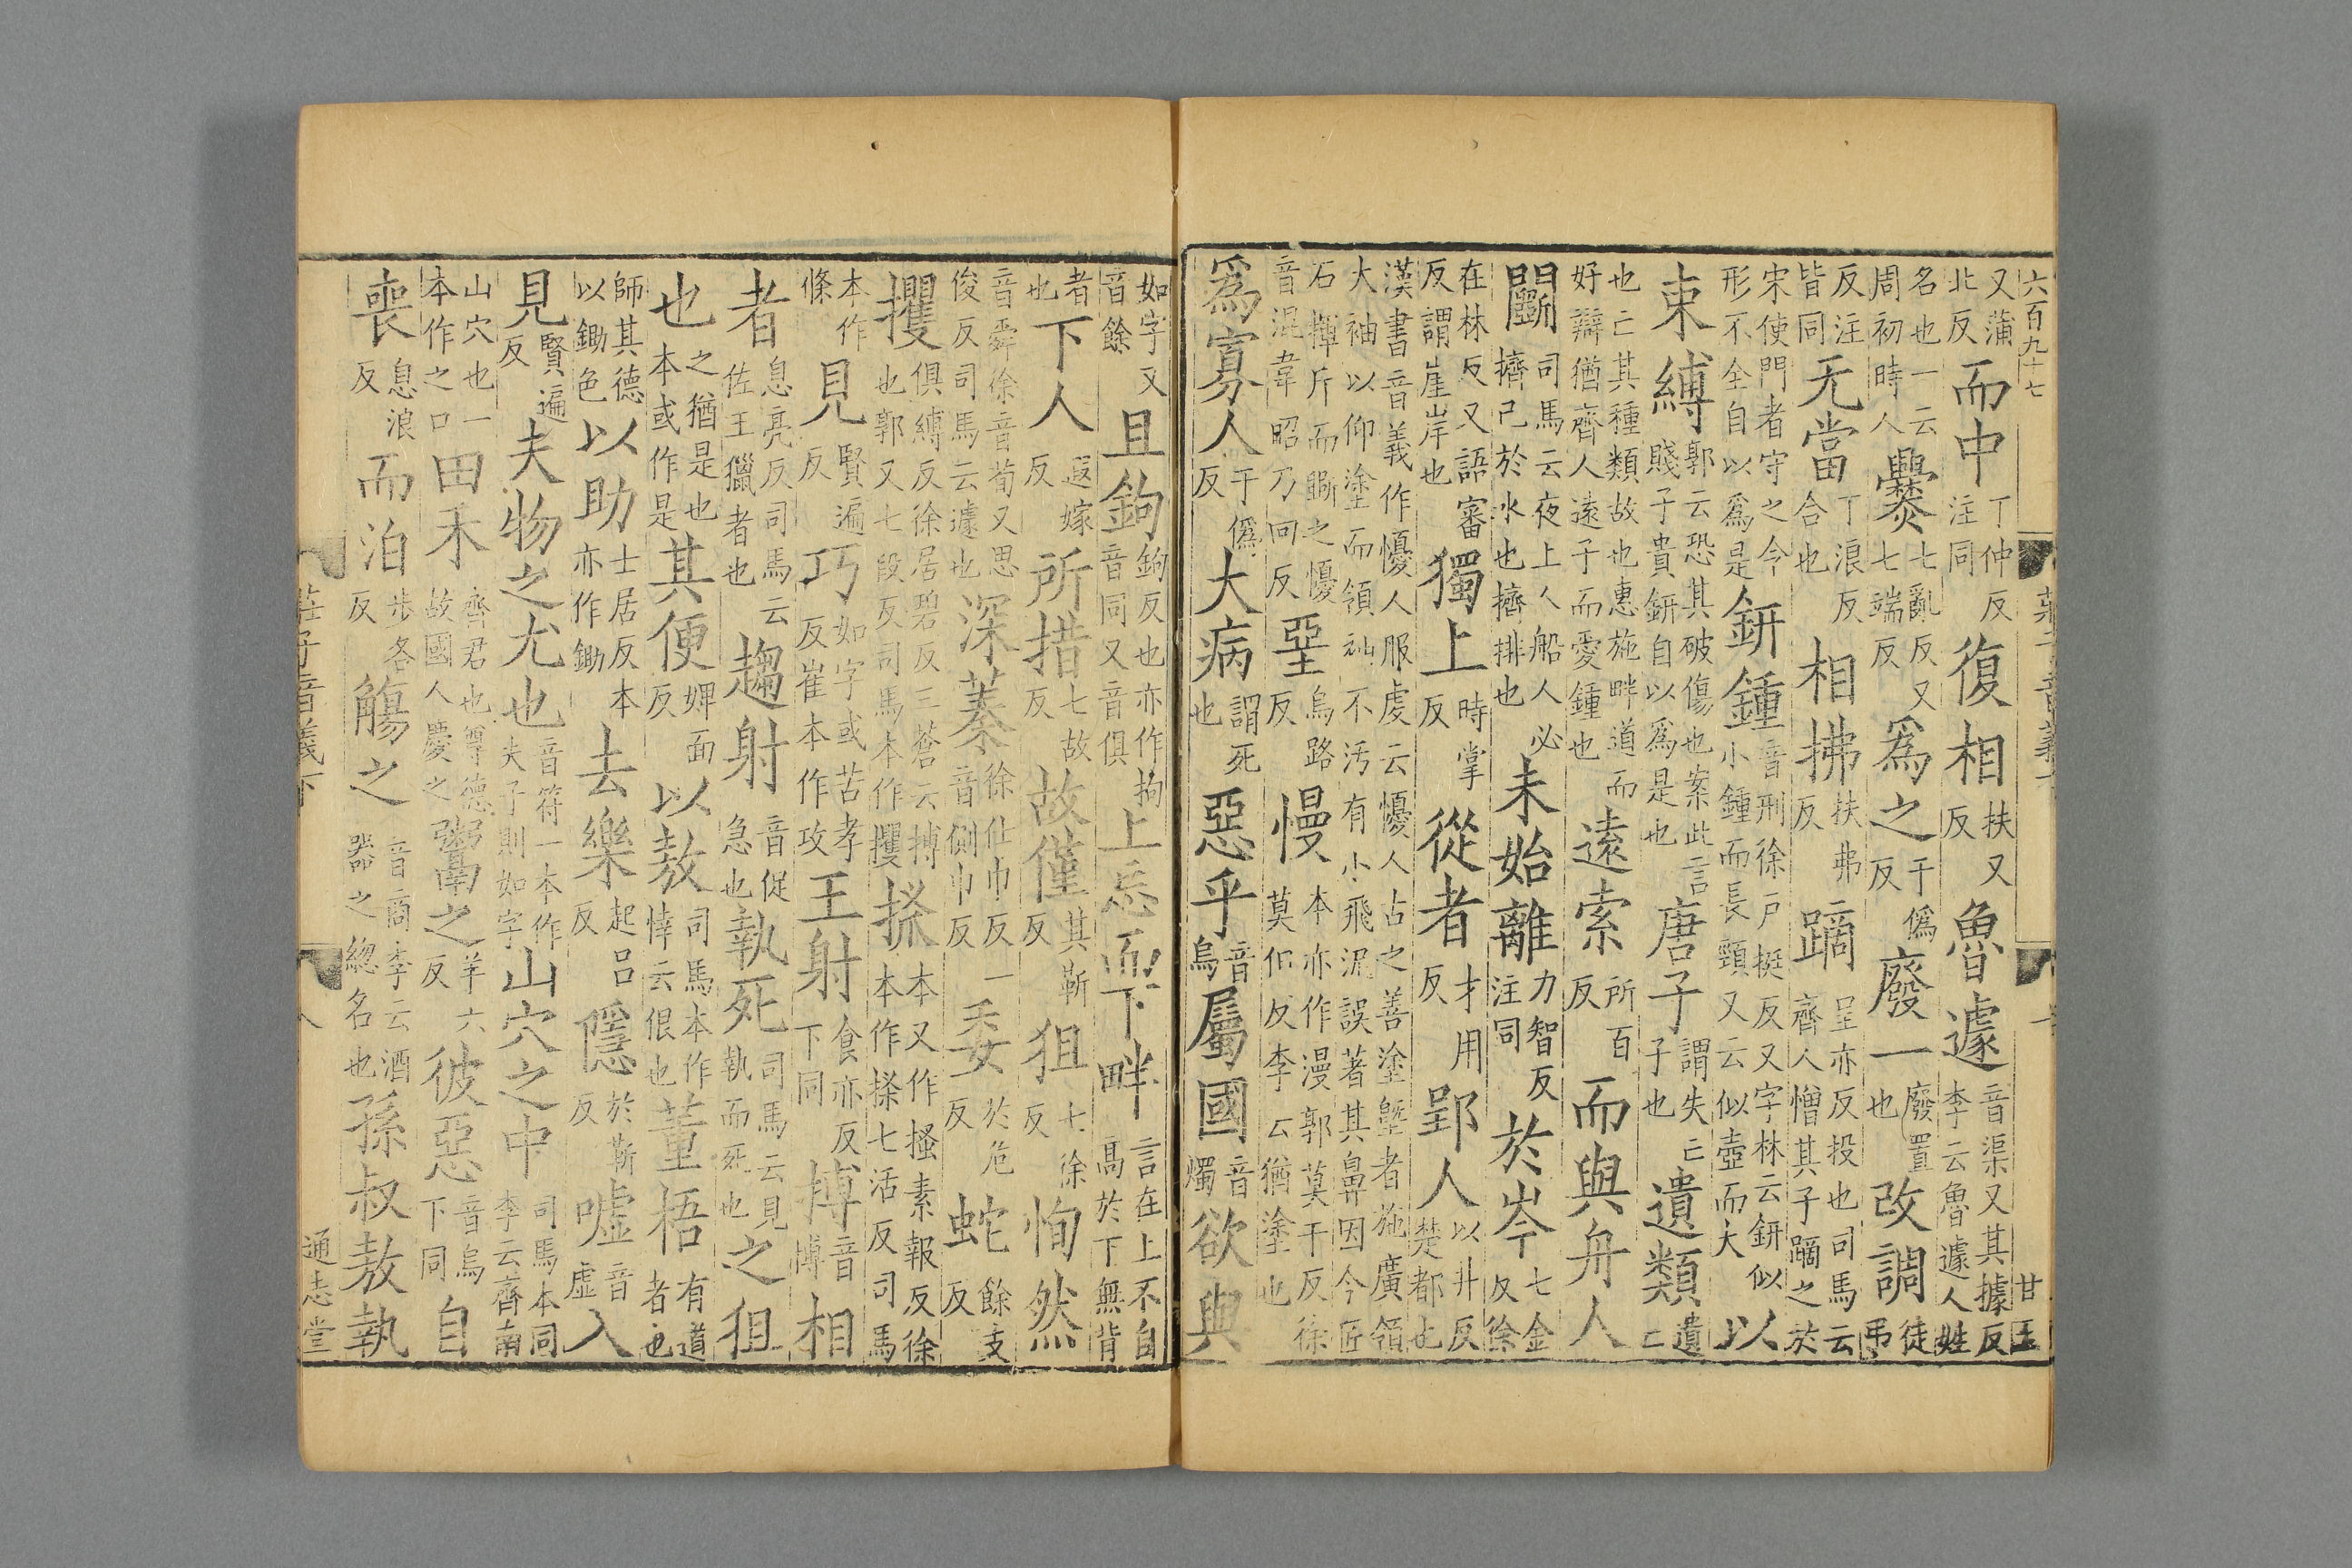 六百九十七
甘玉
又蒲北反而中丁仲反注同復相扶又反魯遽音渠又其據反李云魯遽人姓
名也一云周初時人爨七亂反又七端反爲之于僞反廢一廢置也改調徒弔
反注皆同无當丁浪反合也相拂扶弗反蹢呈亦反投也司馬云齊人憎其子蹢之於
宋使門者守之令形不全自以爲是鈃鍾音刑徐戶挺反又字林云鈃似小鍾而長頸又云似壺而大以
束縛郭云恐其破傷也案此言賤子貴鈃自以爲是也唐子謂失亡子也遺類遺亡
也亡其種類故也惠施畔道而好辯猶齊人遠子而愛鍾也遠索所百反而與舟人
鬭司馬云夜上人船人必擠己於水也擠排也未始離力智反注同於岑七金反徐
在林反又語審反謂崖岸也獨上時掌反從者才用反郢人以井反楚都也
漢書音義作懮人服虔云懮人古之善塗塈者施廣領大袖以仰塗而領袖不汚有小飛泥誤著其鼻因令匠
石揮斤而斵之懮音混韋昭乃回反堊烏路反慢本亦作漫郭莫干反徐莫但反李云猶塗也
爲寡人于僞反大病謂死也惡乎音烏屬國音燭欲與
如字又音餘且鉤鉤反也亦作拘音同又音俱上忘而下畔言在上不自高於下無背
者也下人遐嫁反所措七故反故僅其靳反狙七徐反恂然
音舜徐音荀又思俊反司馬云遽也深蓁徐仕巾反一音側巾反委於危反蛇餘支反
攫俱縛反徐居碧反三蒼云搏也郭又七段反司馬本作攫搔本又作搔素報反徐本作搽七活反司馬
本作條見賢遍反巧如字或苦孝反崔本作攻王射食亦反下同搏音博相
者息亮反司馬云佐王獵者也趨射音促急也執死司馬云見執而死也之狙
也之猶是也本或作是其便婢面反以敖司馬本作悻云佷也董梧有道者也
師其德以鋤色以助士居反本亦作鋤去樂起呂反隱於靳反噓音虛入
見賢遍反夫物之尤也音符一本作夫子則如字山穴之中司馬本同李云齊南
山穴也一本作之口田禾齊君也尊德故國人慶之鬻之羊六反彼惡音烏下同自
喪息浪反而泊步各反觴之音商李云酒器之總名也孫叔敖執
莊子音義下
通志堂